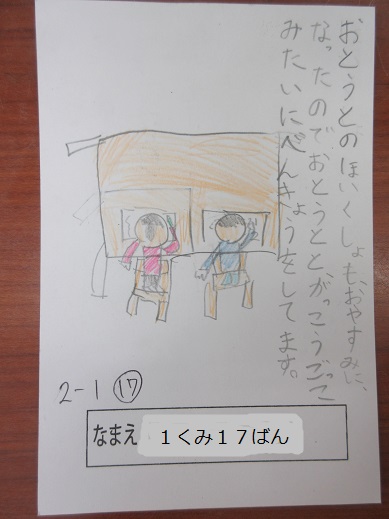 おとうとのほいくしょも、おやすみに、
なったのでおとうとと、がっこうごっこ
みたいにべんきょうをしてます。
2-1 ⑰
なまえ 1くみ17ばん